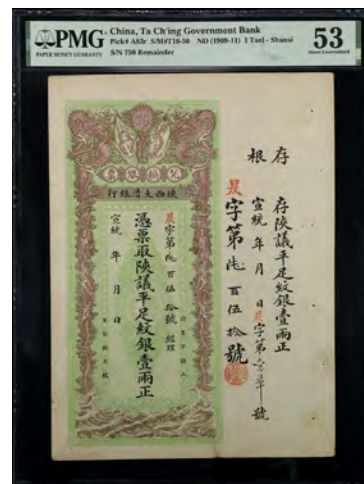 PMG
PAPER MONEY GUARANTY
China, Ta Ch'ing Government Bank
Pick# A83r S/M#T10-50 ND (1909-11) 1 Tael - Shansi
S/N 750 Remainder
53
About Uncirculated
存根
存陝議平足紋銀壹兩正
宣統 年 月 日昃字第 號
昃字第 百伍拾號
兌換銀票
陝西大清銀行
昃字第 百伍拾號 經理
憑票取陝議平足紋銀壹兩正
宣統 年 月 日